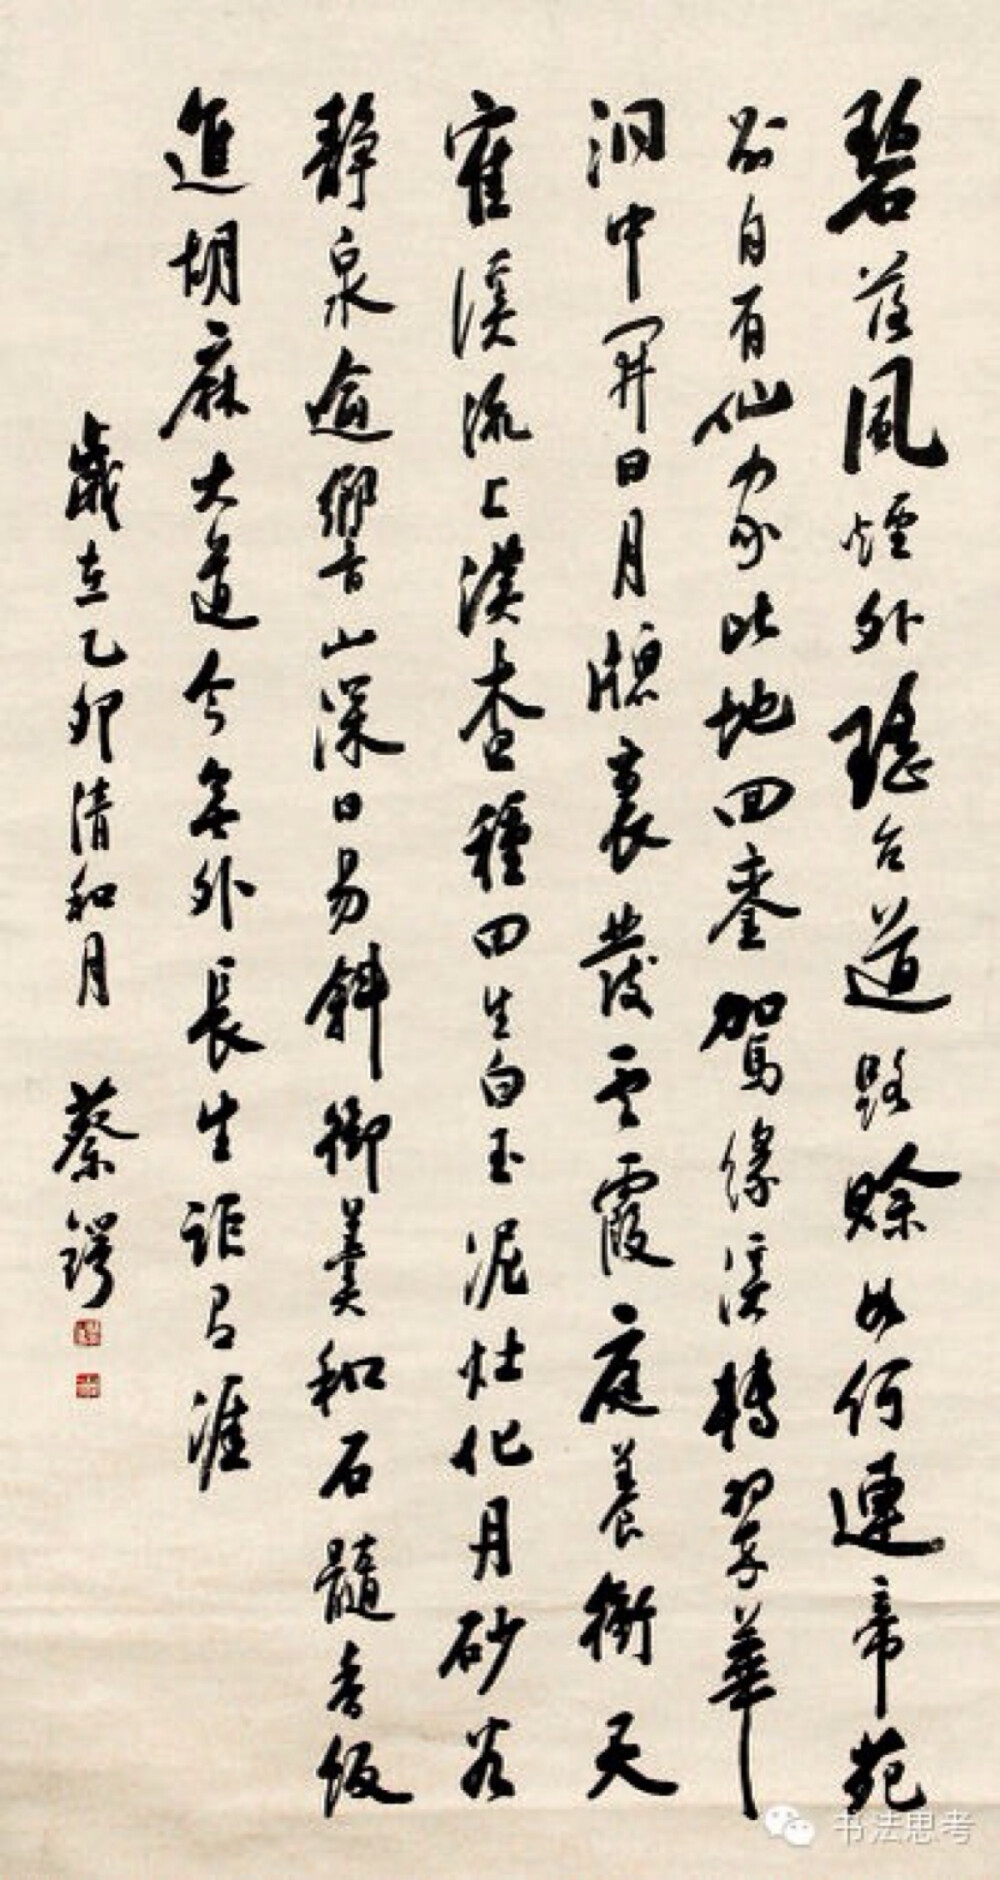 碧落風煙外瑤台道路賒如何連帝苑
別自有仙家此地回鑾駕緣溪轉翠華
洞中開日月牕裏發雲霞庭養衝天
隺溪流上漢查種田生白玉泥灶化月砂谷
靜泉逾響山深日易斜御羹和石髓香飯
進胡麻大道今無外長生詎有涯
歲在乙卯清和月 蔡鍔
书法思考